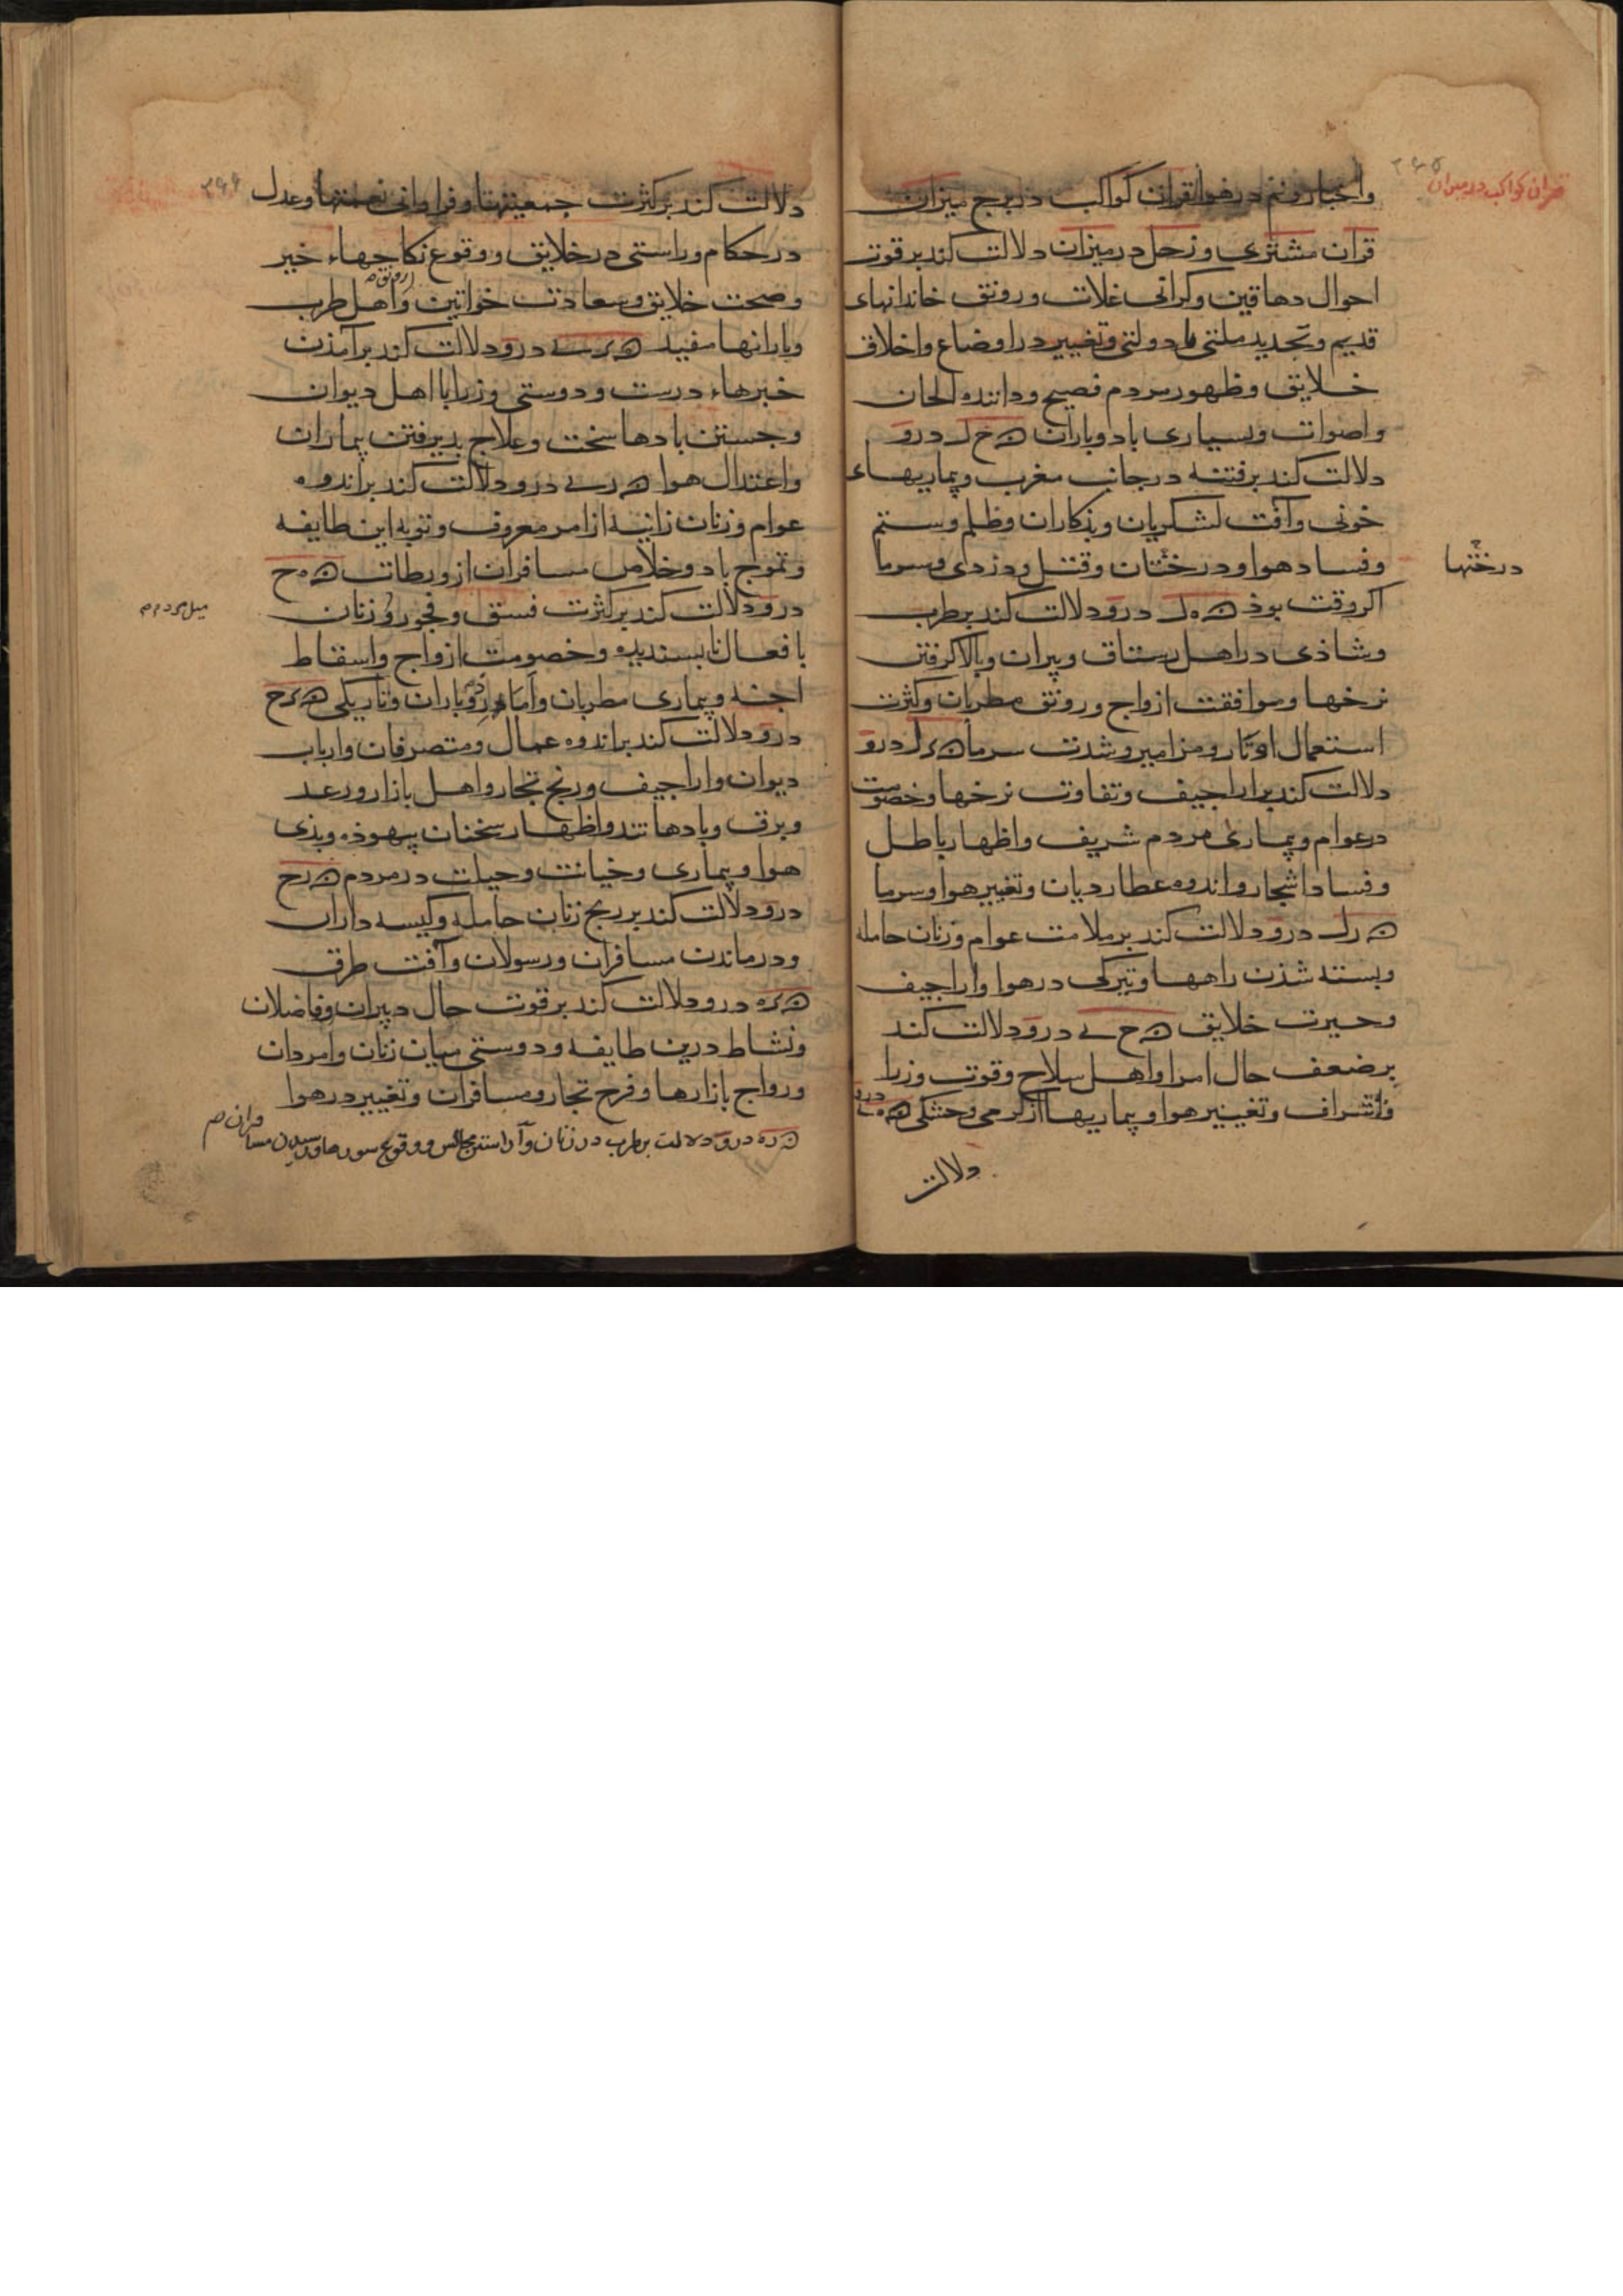 قران کواکب در میزان
واخبار ونم در هوا قران کواکب در برج میزان
قران مشتری وزحل در میزان دلالت کند بر قوت
احوال دهاقین وکرانی غلات ورونق خاندانهای
قدیم وتجدید ملتی یا دولتی وتغییر در اوضاع واخلاق
خلایق وظهور مردم فصیح وداننده الحان
واصوات وبسیاری باد وباران ن خ ل درو
دلالت کند بر فتنه در جانب مغرب وبیماریهاء
خونی وآفت لشکریان وبذکاران وظلم وستم
وفساد هوا ودرختان وقتل ودزدی وسرما
درختها
اکر وقت بوذ ن ه ل درو دلالت کند بر طرب
وشاذی در اهل رستاق وپیران وبالا کرفتن
نرخها وموافقت ازواج ورونق مطربان وکثرت
استعمال اوتار ومزامیر وشدت سرما ن د ل درو
دلالت کند بر اراجیف وتفاوت نرخها وخصومت
در عوام وبیماری مردم شریف واظهار باطل
وفساد اشجار واندوه عطاردیان وتغییر هوا وسرما
ن ر ل درو دلالت کند بر ملامت عوام وزنان حامله
وبسته شذن راهها وتیرکی در هوا واراجیف
وحیرت خلایق ن خ ی درو دلالت کند
بر ضعف حال امرا واهل سلاح وقوت وزرا
واشراف وتغییر هوا وبیماریها از کرمی وخشکی ن ه ی درو
دلالت
دلالت کند بر کثرت جمعیتها وفراوانی نعمتها وعدل
در حکام وراستی در خلایق ووقوع نکاحهاء خیر
وصحت خلایق وسعادت خواتین واهل طرب
وبارانها مفید ن د ی درو دلالت کند بر آمذن
خبرهاء درست ودوستی وزرا با اهل دیوان
وجستن بادها سخت وعلاج بذیرفتن بیماران
واعتدال هوا ن ر ی درو دلالت کند بر اندوه
عوام وزنان زانیه از امر معروف وتوبه این طایفه
وتموج باد وخلاص مسافران از ورطات ن ه خ
درو دلالت کند بر کثرت فسق وفجور وزنان
میل مردم
بافعال نابسندیده وخصومت ازواج واسقاط
اجنه وبیماری مطربان وباران وتاریکی ن د خ
درو دلالت کند بر اندوه عمال ومتصرفان وارباب
دیوان واراجیف ورنج تجار واهل بازار ورعد
وبرق وبادها تند واظهار سخنان بیهوذه وبذی
هوا وبیماری وخیانت وحیلت در مردم ن ر خ
درو دلالت کند بر رنج زنان حامله وکیسه داران
ودرماندن مسافران ورسولان وآفت طرق
ن د ه درو دلالت کند بر قوت حال دبیران وفاضلان
ونشاط درین طایفه ودوستی میان زنان وامردان
ورواج بازارها وفرح تجار ومسافران وتغییر در هوا
ن ر ه درو دلالت بر طرب در زنان وآراستن مجالس ووقوع سورها ورسیدن مسافران